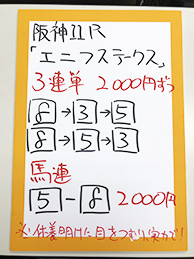 阪神11R
「エニフステークス」
3連単 2000円ずつ
8→3→5
8→5→3
馬連
5-8 2000円
※休養明けに目をつむり実力で!